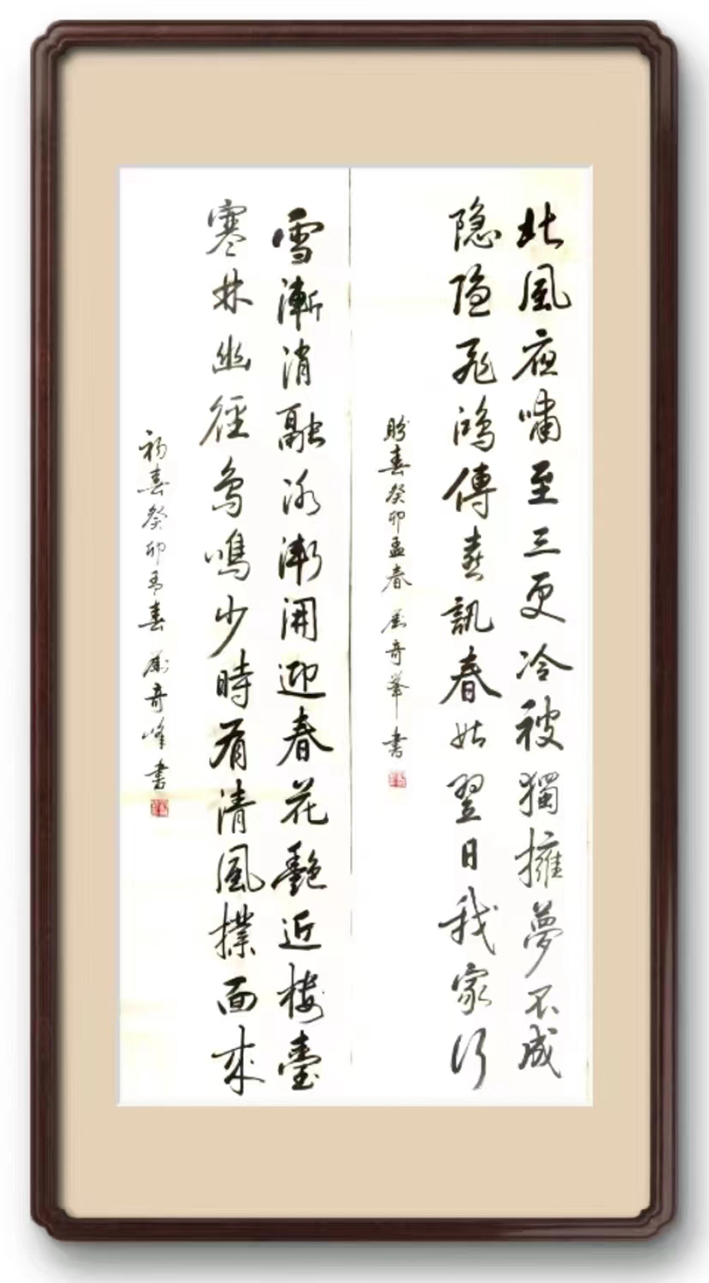 北風夜嘯至三更冷被獨擁夢不成
隐隐飛鴻傳春訊春姑翌日我家行
盼春癸卯孟春 屈奇峯書
雪漸消融冰漸開迎春花艷近樓臺
寒林幽徑鳥鳴少時有清風撲面來
初春癸卯孟春 屈奇峰書